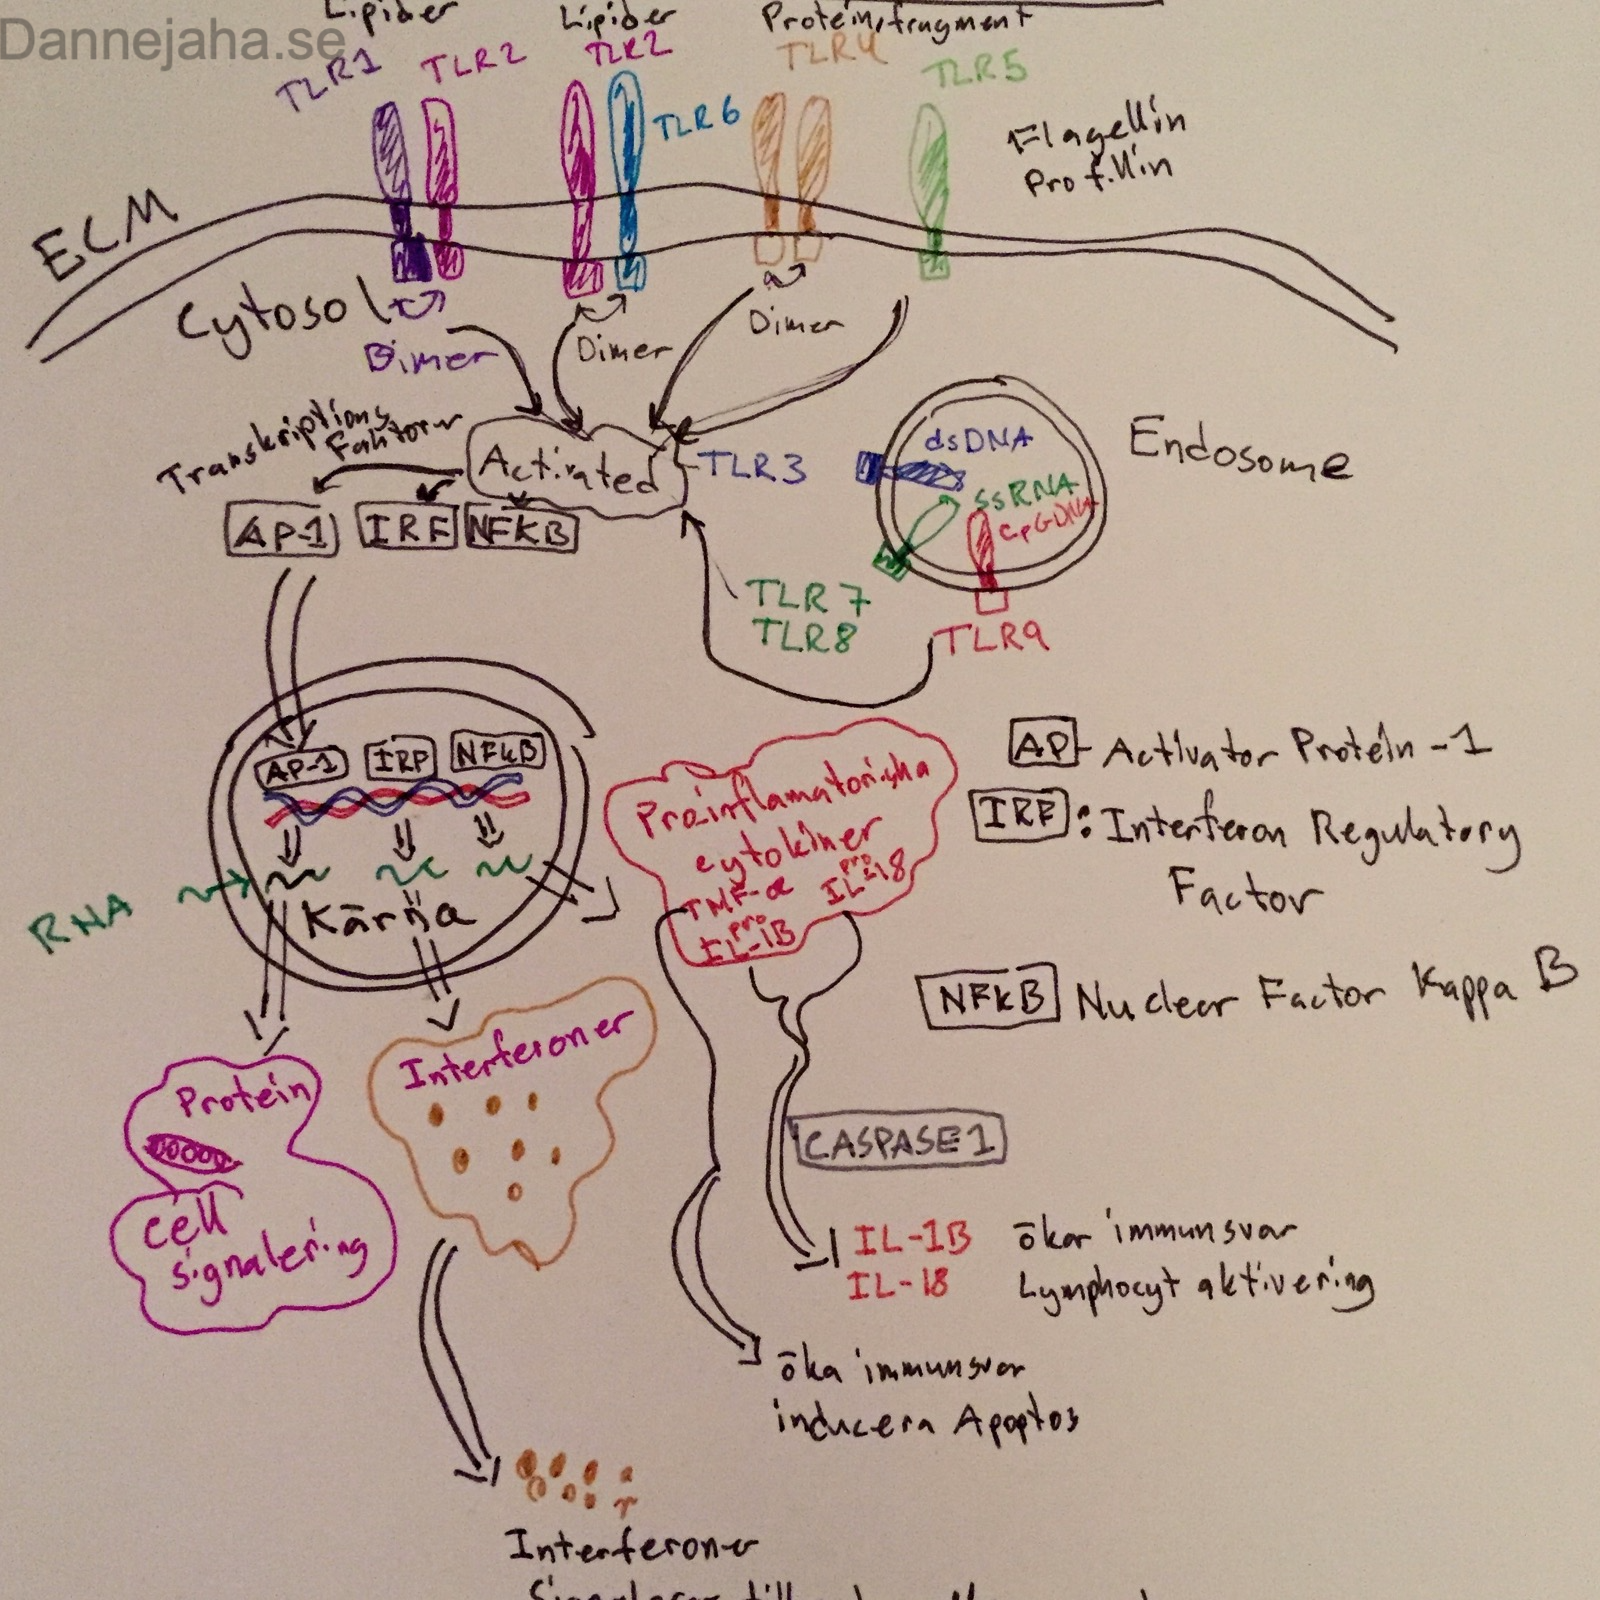 Dannejaha.se
Lipider
Lipider
Protein, fragment
TLR1
TLR2
TLR2
TLR6
TLR4
TLR5
Flagellin
Profillin
ECM
Cytosol
Dimer
Dimer
Dimer
Transkriptions
Faktorer
Activated
TLR3
dsDNA
ssRNA
CpGDNA
Endosome
AP-1
IRF
NFKB
TLR7
TLR8
TLR9
AP-1
IRP
NFkB
RNA
Kärna
Proinflamatoriska
cytokiner
TMF-α
pro
IL-18
pro
IL-1B
AP- Activator Protein-1
IRF: Interferon Regulatory
Factor
NFkB Nuclear Factor Kappa B
Protein
cell
signalering
Interferoner
CASPASE1
IL-1B ökar immunsvar
IL-18 Lymphocyt aktivering
öka immunsvar
inducera Apoptos
Interferoner